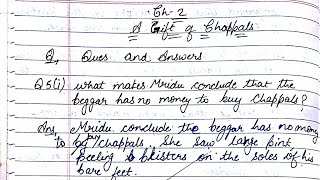 Ch-2
A Gift of Chappals
Q, Ques and Answers
Q5(i) what makes Mridu conclude that the
beggar has no money to buy chappals?
Ans, Mridu conclude the beggar has no money
to buy chappals. She saw large pink
peeling blisters on the soles of his
bare feet.